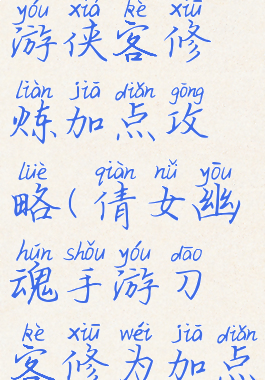 yóu xiá kè xiū
游侠客修
liàn jiā diǎn gōng
炼加点攻
lüè qiàn nǚ yōu
略(倩女幽
hún shǒu yóu dāo
魂手游刀
kè xiū wéi jiā diǎn
客修为加点